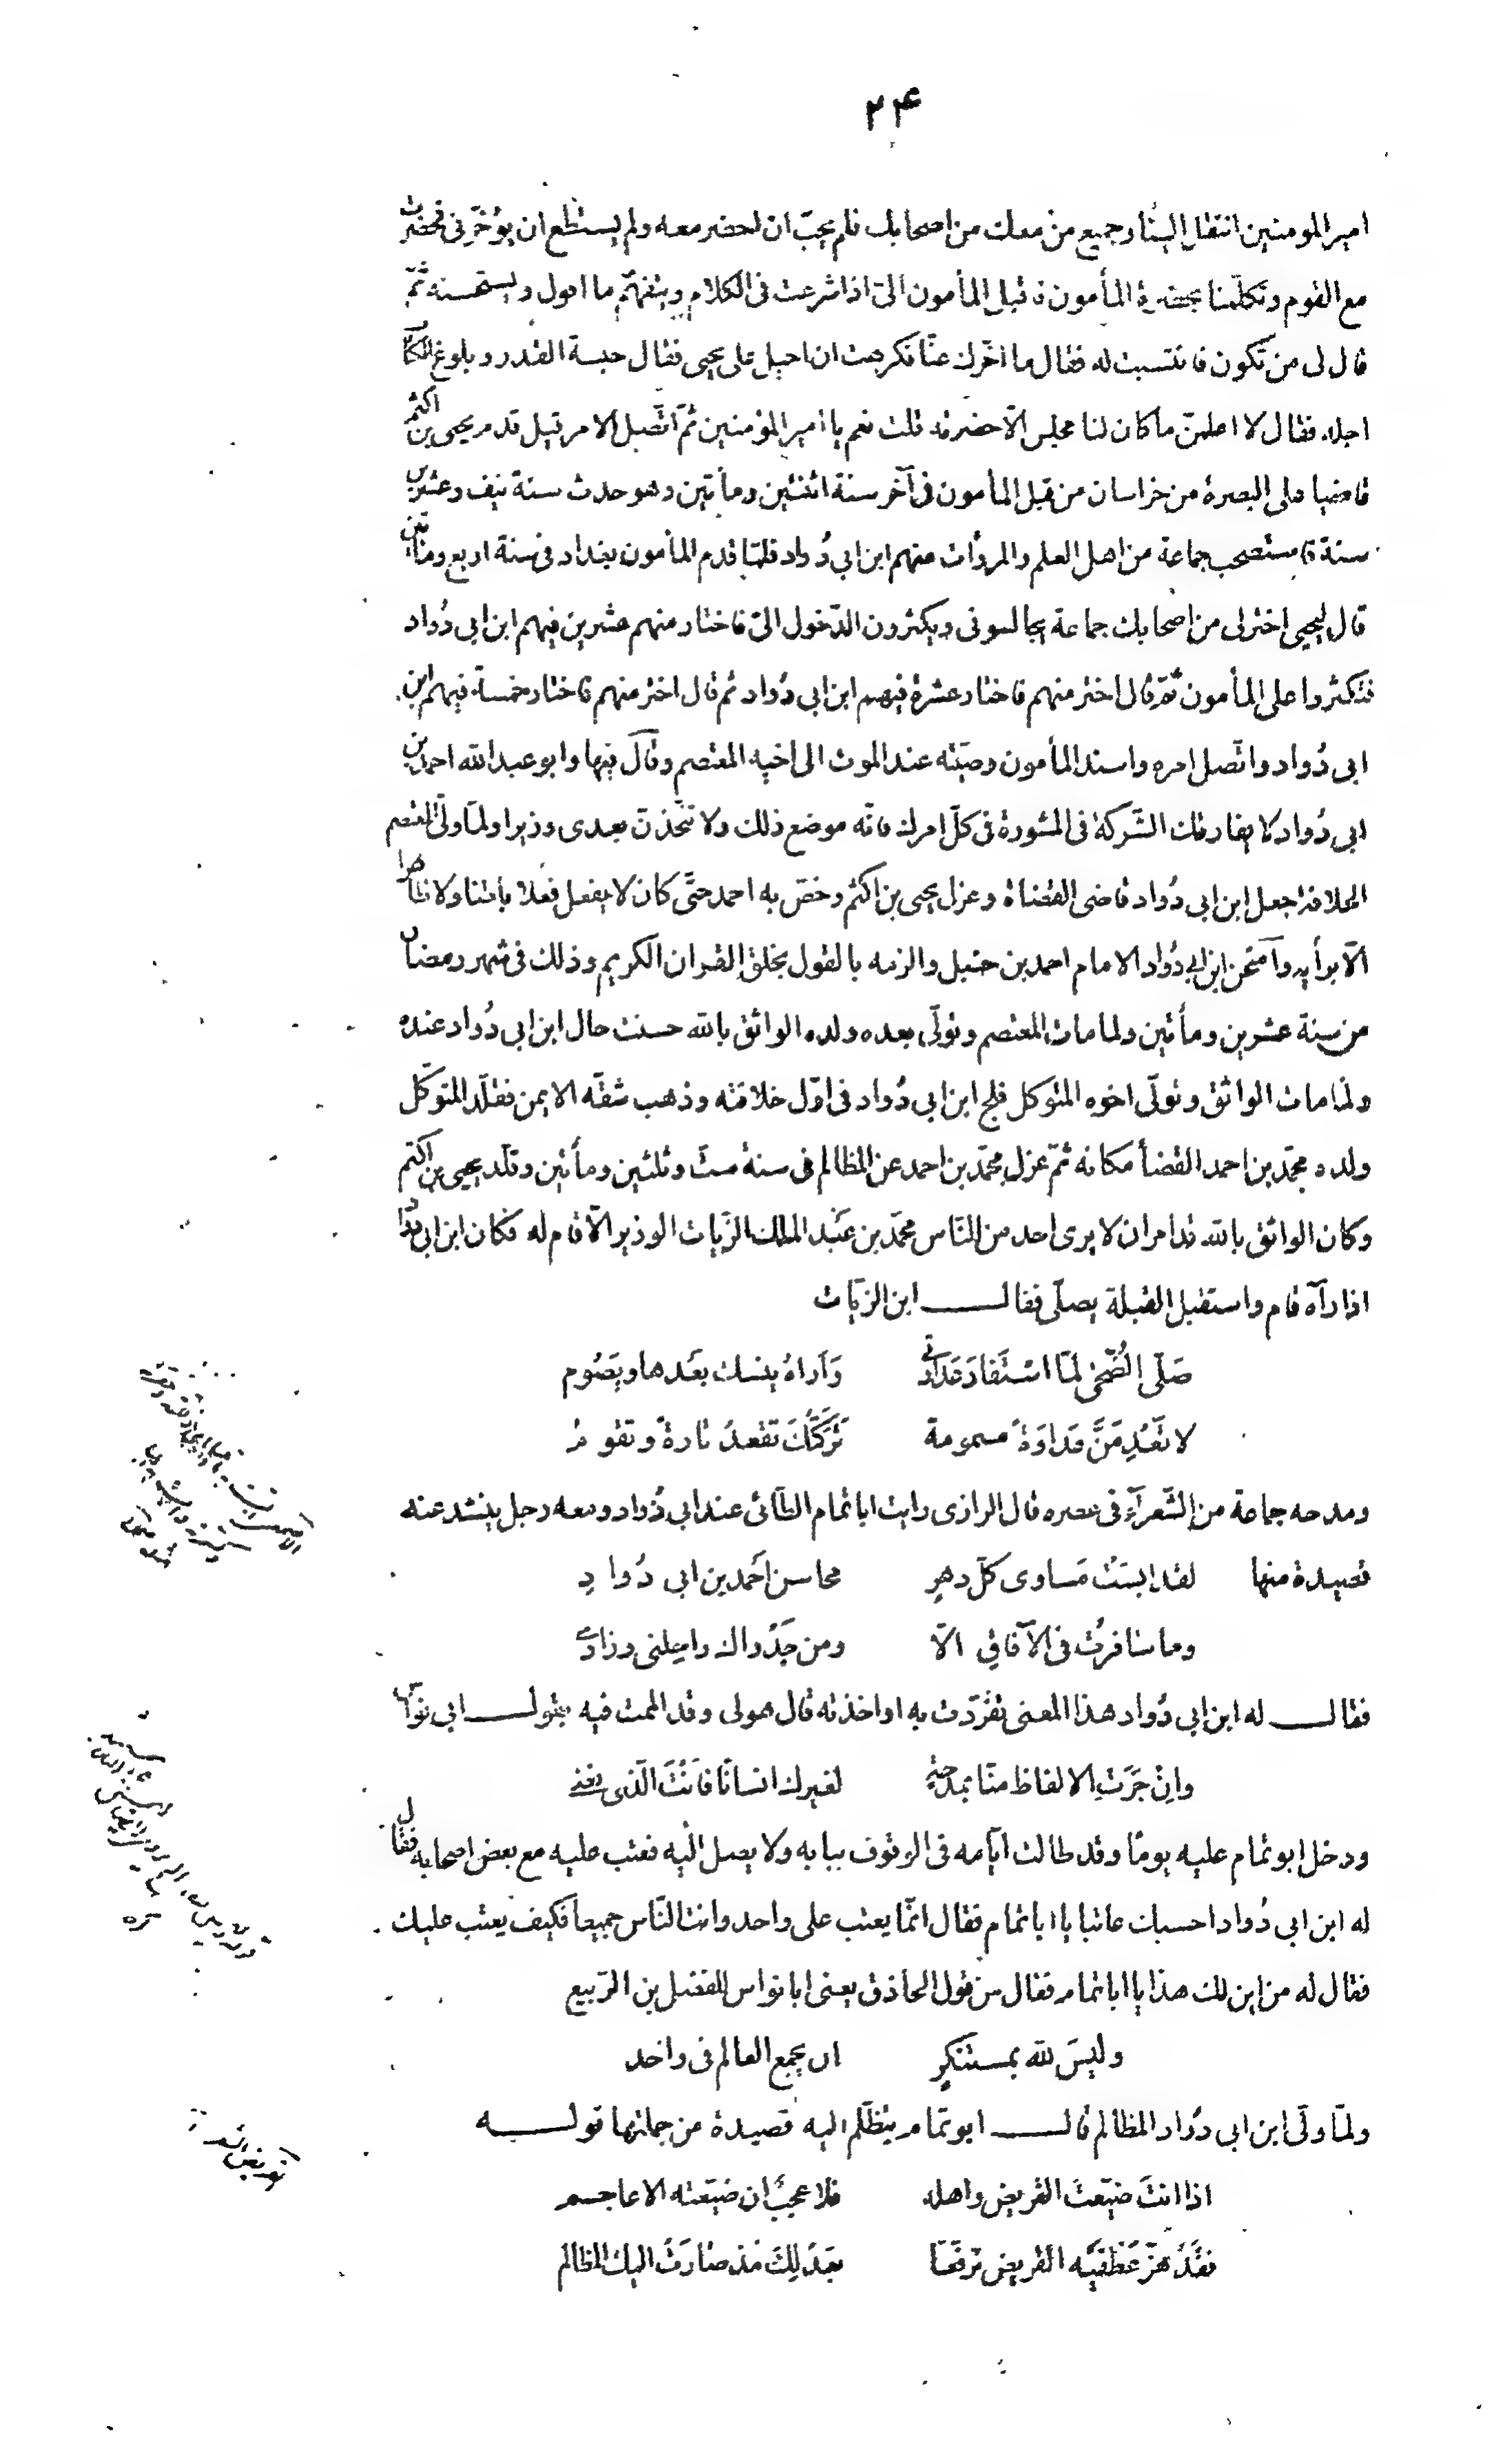 ۲۴
امير المومنين انتقل الينا وجميع من معك من اصحابك فلم يحبّ ان احضر معه ولم يستطع ان يؤخّرنى فحضرت
مع القوم وتكلّمنا بحضرة المأمون فاقبل المأمون الىّ اذا شرعت فى الكلام ويتفهّم ما اقول ويستحسنه ثمّ
قال لى من تكون فانتسبت له فقال ما اخّرك عنّا فكرهت ان احيل على يحيى فقال حبسة القدر وبلوغ الكتاب
اجله فقال لا اعلمنّ ما كان لنا مجلس الّا حضرته قلت نعم يا امير المؤمنين ثمّ اتّصل الامر قيل قدم يحيى بن اكثم
قاضيا على البصرة من خراسان من قبل المأمون فى آخر سنة اثنتين ومأتين وهو حدث سنة نيف وعشرين
سنة فاستصحب جماعة من اهل العلم والمروأت منهم ابن ابى دُواد فلمّا قدم المأمون بغداد فى سنة اربع ومأتين
قال ليحيى اختر لى من اصحابك جماعة يجالسونى ويكثرون الدّخول الىّ فاختار منهم عشرين فيهم ابن ابى دُواد
فتكثروا على المأمون ثمّ قال اختر منهم فاختار عشرة فيهم ابن ابى دُواد ثم قال اختر منهم فاختار خمسة فيهم ابن
ابى دُواد واتّصل امره واسند المأمون وصيّته عند الموت الى اخيه المعتصم وقال فيها وابو عبد الله احمد بن
ابى دُواد لا يفارقك الشّركة فى المشورة فى كلّ امرك فانّه موضع ذلك ولا تتّخذنّ بعدى وزيرا ولمّا ولّى المعتصم
الخلافة جعل ابن ابى دُواد قاضى القضاة وعزل يحيى بن اكثم وخصّ به احمد حتّى كان لا يفعل فعلا باطنا ولا ظاهرا
الّا برأيه وامتحن ابن ابى دُواد الامام احمد بن حنبل والزمه بالقول بخلق القران الكريم وذلك فى شهر رمضان
من سنة عشرين ومأتين ولما مات المعتصم وتولّى بعده ولده الواثق بالله حسنت حال ابن ابى دُواد عنده
ولمّا مات الواثق وتولّى اخوه المتوكل فلج ابن ابى دُواد فى اوّل خلافته وذهب شقّه الايمن فقلّد المتوكّل
ولده محمّد بن احمد القضأ مكانه ثمّ عزل محمّد بن احمد عن المظالم فى سنة ستّ وثلثين ومأتين وقلّد يحيى بن اكثم
وكان الواثق بالله قد امر ان لا يرى احد من النّاس محمّد بن عبد الملك الزّيات الوزير الّا قام له فكان ابن ابى دُواد
اذا رآه قام واستقبل القبلة يصلّى فقال ابن الزيّات
صَلّى الضُّحى لمّا اسْتَفادَ عَداوَتى وَاَراهُ ينسك بعَدها ويَصُوم
لا تَعْدِمَنَّ عَداوَةً مسمومة تَرَكَتْكَ تقعدُ تارةً وتقومُ
ومدحه جماعة من الشّعرآء فى عصره قال الرازى رايت ابا تمام الطّائى عند ابى دُواد ومعه رجل ينشد عنه
قصيدة منها لقد انسَتْ مَساوى كلّ دهرٍ محاسن اَحْمد بن ابى دُوادِ
وما سافرتُ فى الآفاقِ الّا ومن جَدْواك راحِلتى وزادى
فقال له ابن ابى دُواد هذا المعنى تفرّدت به او اخذته قال هو لى وقد المحت فيه بقول ابى نواس
وانْ جَرَتِ الالفاظ منّا بمدحةٍ لغيرك انسانًا فاَنْتَ الّذى نعنى
ودخل ابو تمام عليه يومًا وقد طالت ايّامه فى الوقوف ببابه ولا يصل اليه فعتب عليه مع بعض اصحابه فقال
له ابن ابى دُواد احسبك عاتبا يا ابا تمام فقال انّما يعتب على واحد وانت النّاس جميعا فكيف يعتب عليك
فقال له من اين لك هذا يا ابا تمام فقال من قول الحاذق يعنى ابا نواس للفضل بن الرّبيع
وليسَ لله بمستنكرٍ ان يجمع العالم فى واحد
ولمّا ولّى ابن ابى دُواد المظالم قال ابو تمّام يتظلّم اليه قصيدة من جملتها قوله
اذا انتَ ضيّعتَ القريض واهله فلا عجبٌ ان ضيّعته الاعاجم
فقَدْ هزّ عَطْفيه القريض ترفّعا بعَدْلِكَ مُذ صارَتْ اليك المظالم